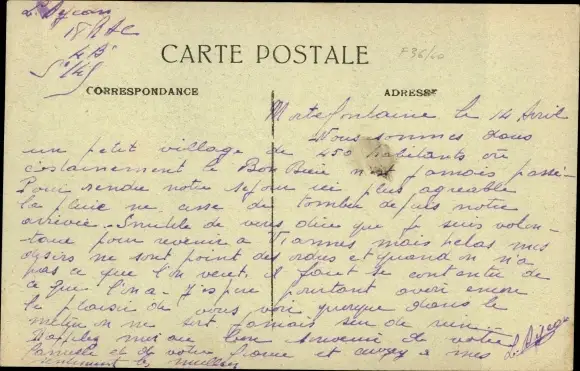 18 RAC
CARTE POSTALE
CORRESPONDANCE
ADRESSE
Mortefontaine le 14 Avril
Nous sommes dans
un petit village de 450 habitants où
certainement le Bon Dieu n'est jamais passé.
Pour rendre notre sejour ici plus agreable
la pluie ne cesse de tomber depuis notre
arrivée. Inutile de vous dire que je suis volon-
taire pour revenir a Viarmes mais helas mes
desirs ne sont point des et quand on n'a
pas ce que l'on veut, il faut se contenter de
ce que l'on a. J'espere pourtant avoir encore
le plaisir de vous voir quoique dans le
metier on ne soit jamais sur de rien.
Rappelez moi au bon souvenir de votre
famille et de votre et a mes
sentiments les meilleurs